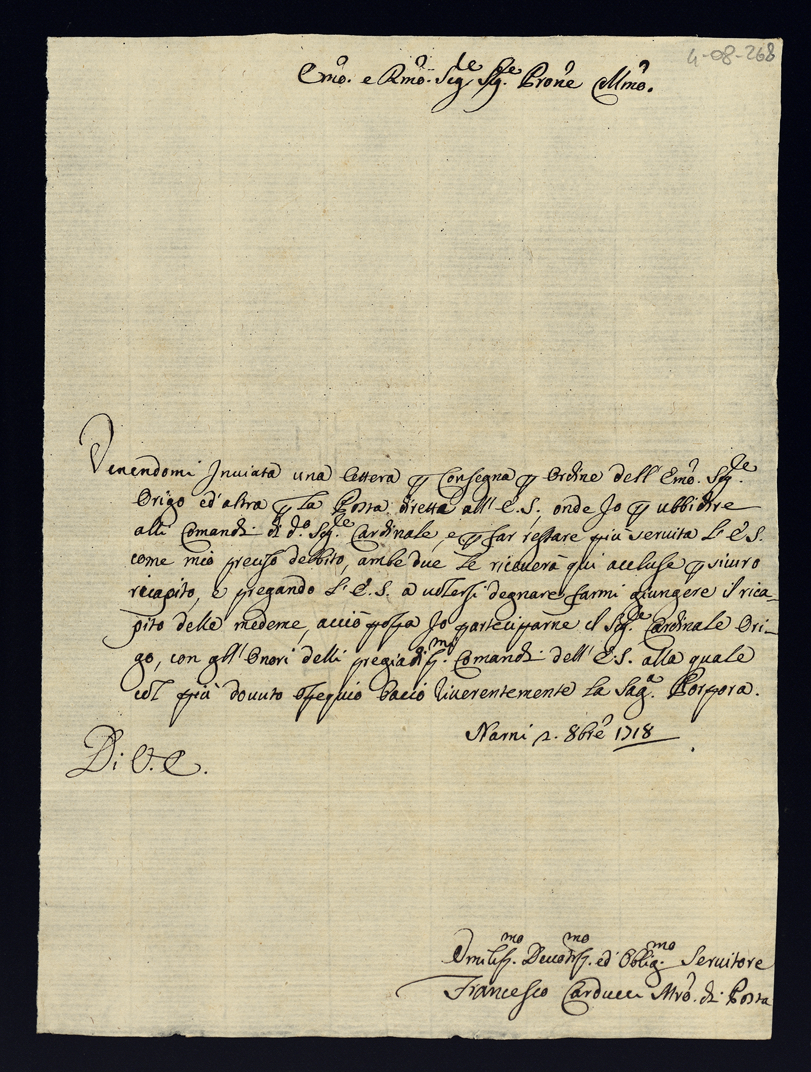 4-08-268
Emo. e Rmo. Sig.re Sig.re Prone Mmo.
Venendomi Inviata una lettera p Consegna p Ordine dell' Emo. Sig.re
Origo ed' altra p La Posta diretta all' E.S., onde Jo p ubbidire
alli Comandi di do. Sig.re Cardinale, e p far restare più servita L' E.S.
come mio preciso debito, ambe due Le riceverà qui accluse p sicuro
ricapito, e pregando L' E.S. a volersi degnare farmi giungere il rica-
pito delle medeme, acciò possa Jo parteciparne il Sig.re Cardinale Ori-
go, con gl' Onori delli pregiadiss.mi Comandi dell' E.S. alla quale
col più dovuto ossequio bacio riverentemente La Sag.a Porpora.
Narni 2. 8bre 1718
Di V. E.
Umiliss.mo Devotiss.mo ed' Oblig.mo Servitore
Francesco Carducci Mro. di Posta